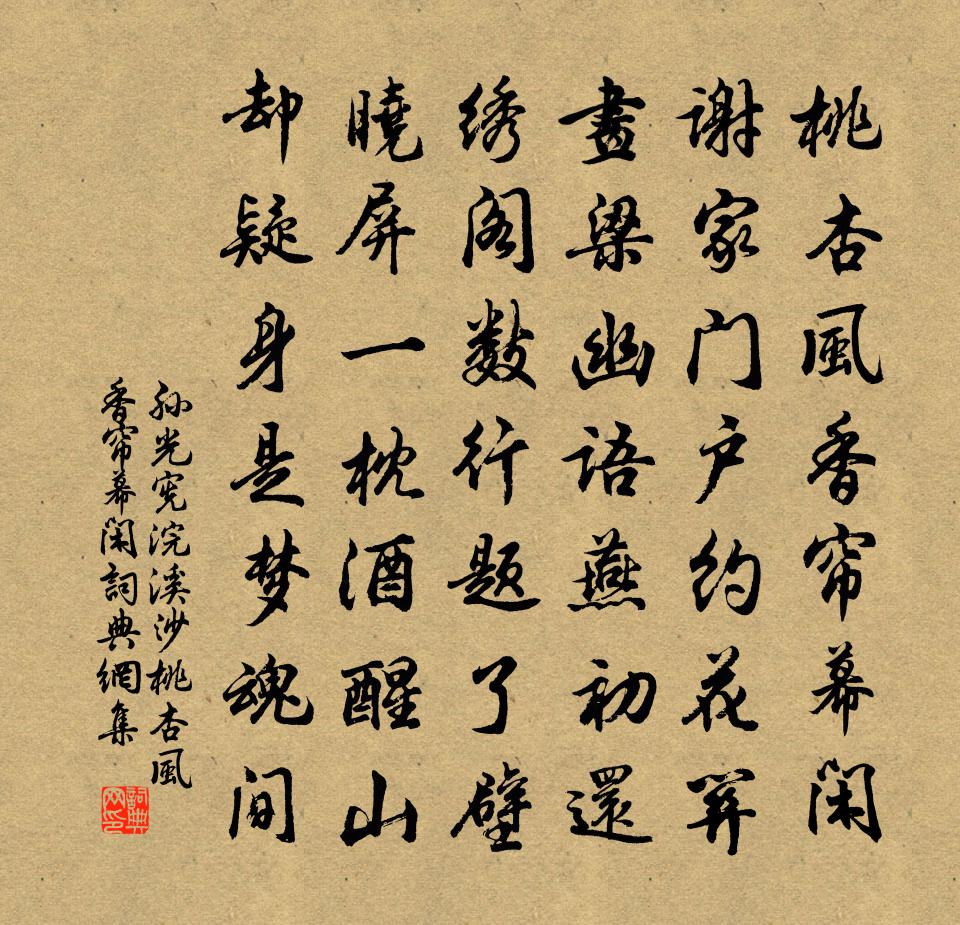 桃杏風香帘幕閑
謝家门户約花關
畫梁幽語燕初還
绣阁數行題了壁
曉屏一枕酒醒山
却疑身是梦魂间
孙光宪浣溪沙桃杏風
香帘幕閑詞典網集
詞典网印